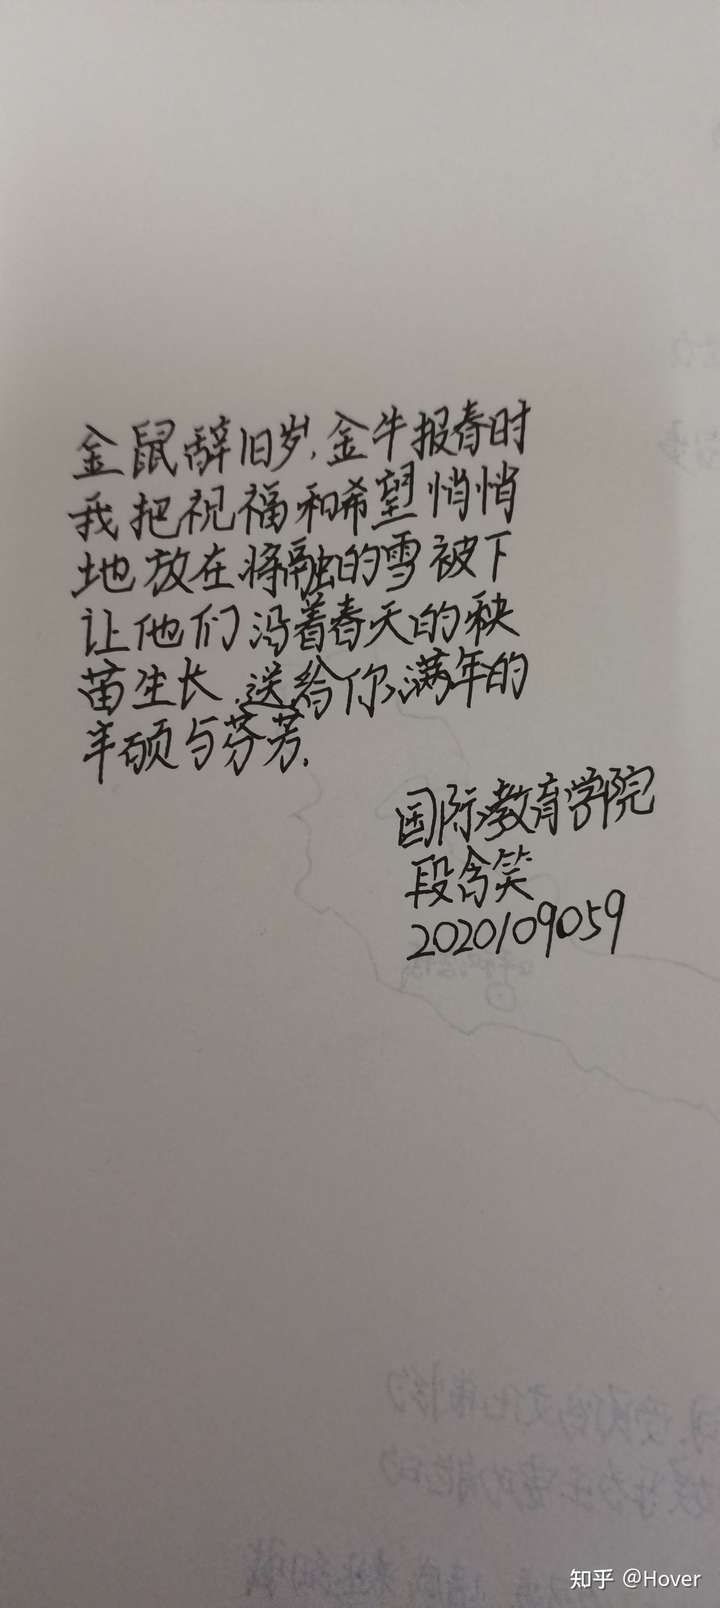 金鼠辞旧岁,金牛报春时
我把祝福和希望悄悄
地放在将融的雪被下
让他们沿着春天的秧
苗生长,送给你满年的
丰硕与芬芳.
国际教育学院
段含笑
2020109059
知乎 @Hover